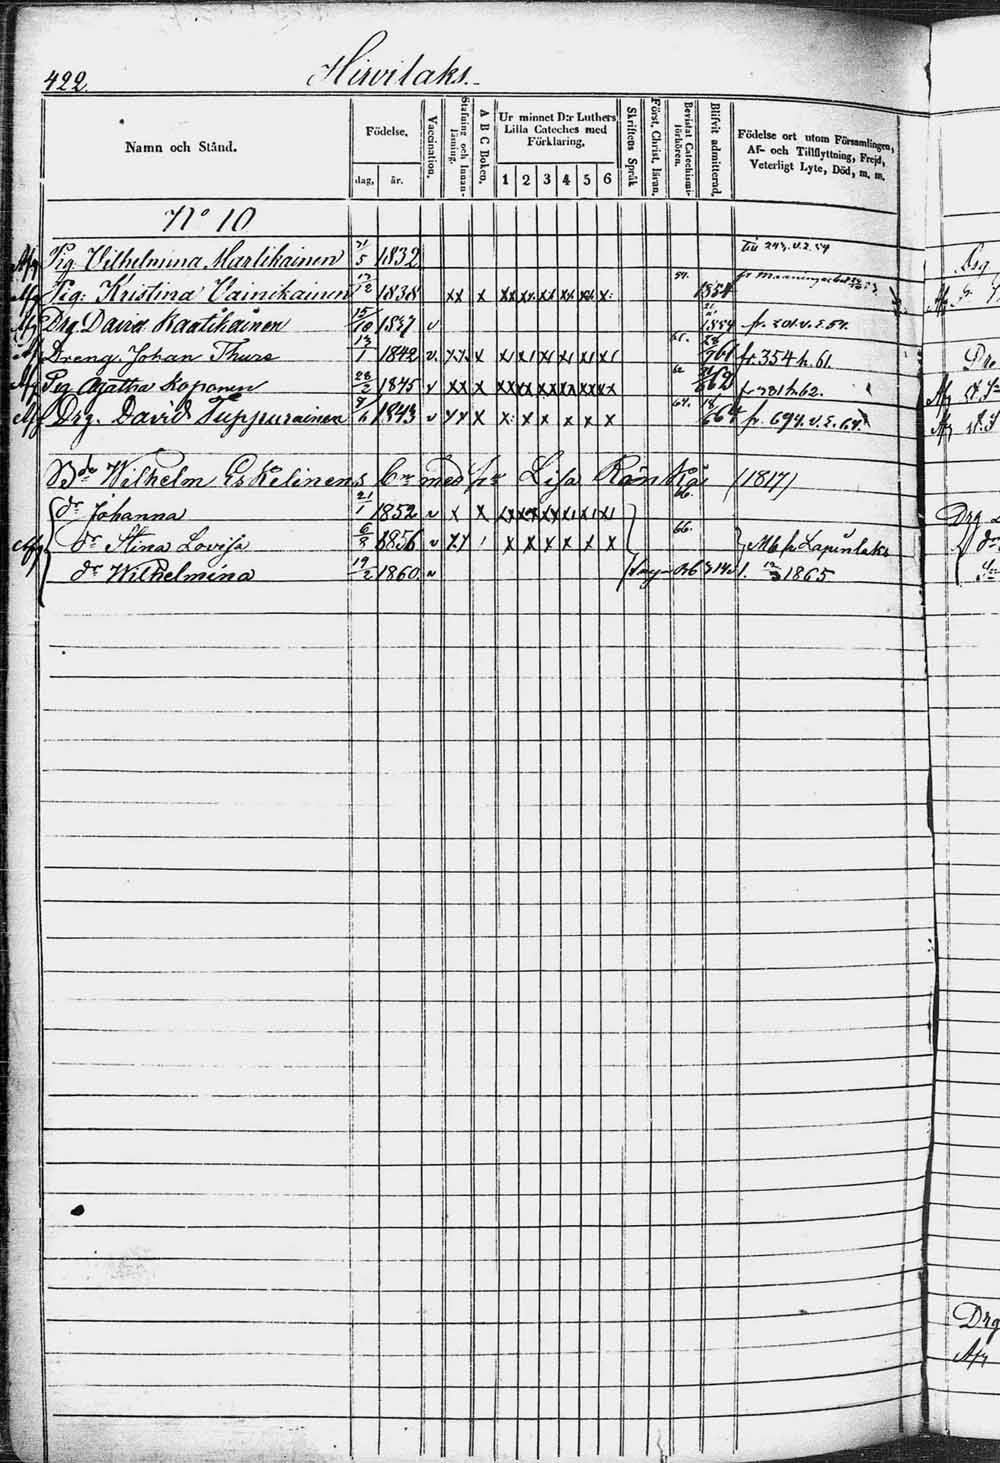 422. Hirvilaks.
Namn och Stånd. Födelse, dag, år. Vaccination. Stafning och Innanläsning. A B C Boken. Ur minnet D:r Luthers Lilla Cateches med Förklaring, 1 2 3 4 5 6 Skriftens Språk Först. Christ. Läran. Bevistat Catechismi-förhören. Blifvit admitterad. Födelse ort utom Församlingen, Af- och Tillflyttning, Frejd, Veterligt Lyte, Död, m. m.
N:o 10
Afg Pig. Vilhelmina Martikainen 21/5 1832
Afg Pig: Kristina Vainikainen 1838 xx x 54. 1854
Afg Drg David Kaatikainen 15/10 1837 v 1854 fr. 54.
Afg Dreng Johan Thure 13/1 1842 v. xx x x x x x x x 61. 28/6 61 fr. 354 h. 61.
Afg Pig Agatha Koponen 28/2 1845 v xx x 62 fr 781 h. 62.
Afg Drg. David Tuppurainen 7/6 1843 v xx x x x x x x x 64. 18/6 64 fr. 694. v. s. 64.
Wilhelm Eskelinens med Lisa (1817)
dr Johanna 21/1 1852 v x x 66.
Afg dr Stina Lovisa 6/8 1856 v xx x x x x x x 66. fr Lapinlaks
dr Wilhelmina 19/2 1860 v 1865